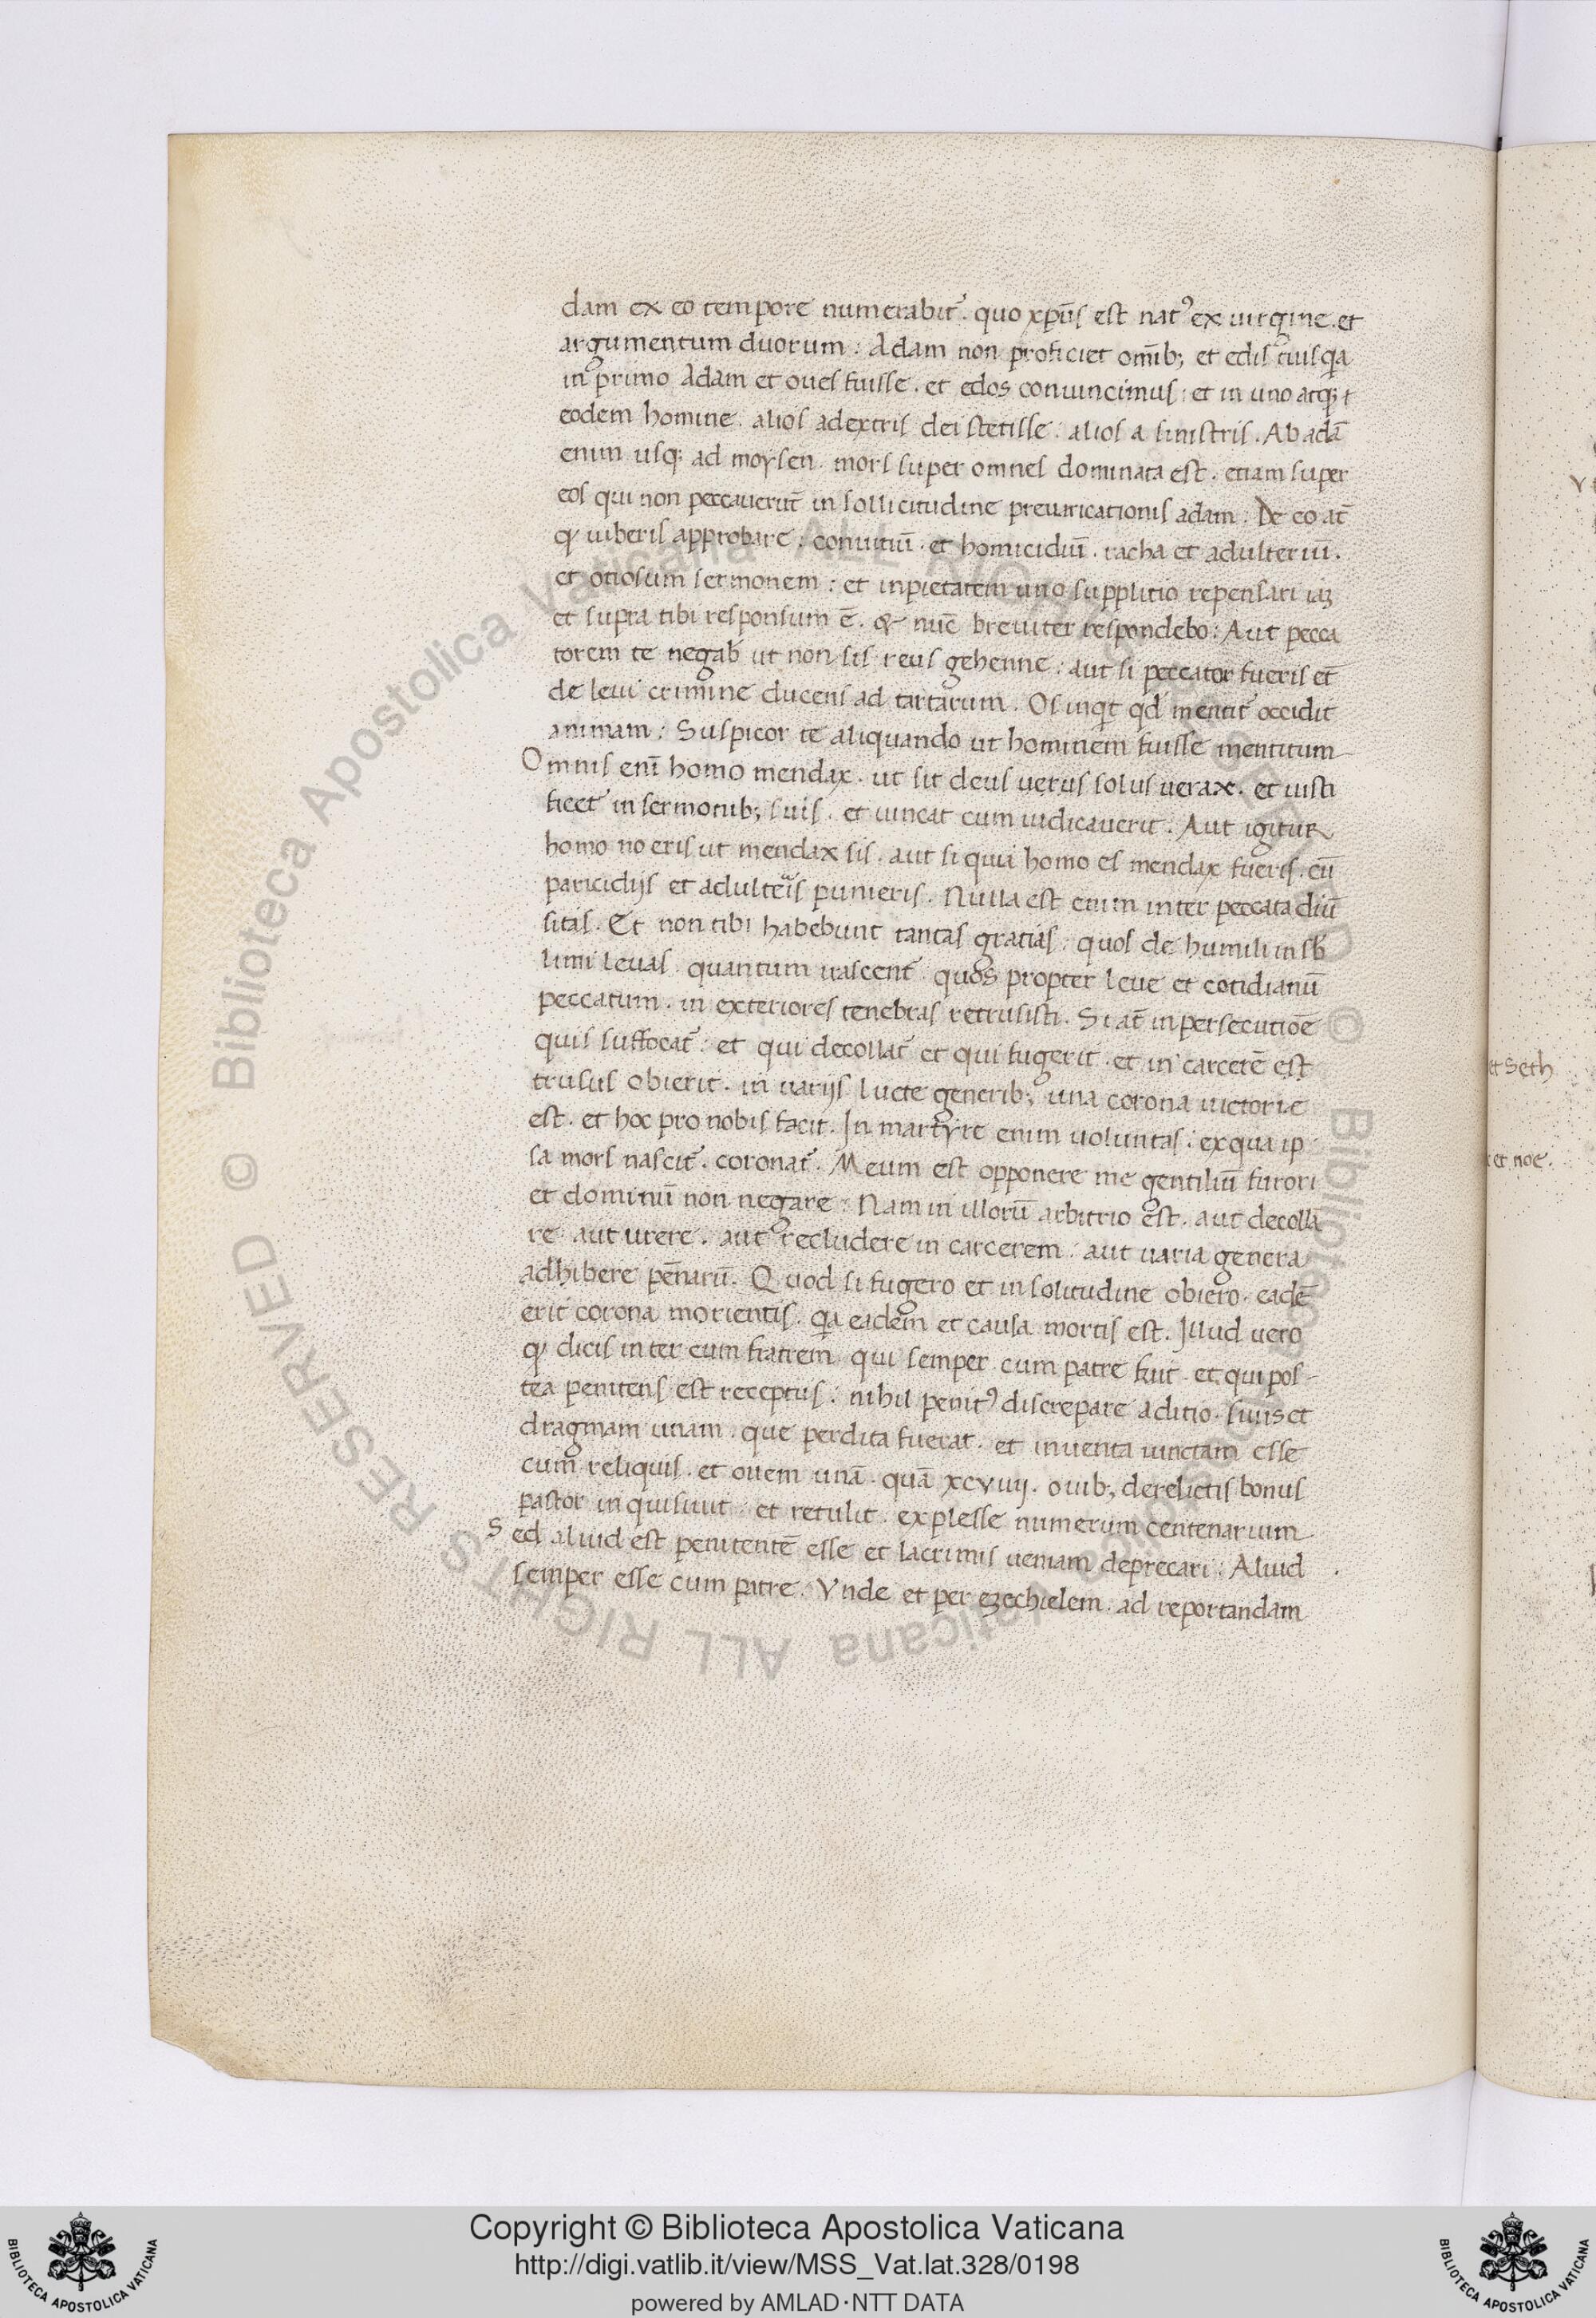 dam ex eo tempore numerabit̄. quo xp̄us est nat⁹ ex uirgine. et
argumentum duorum: Adam non proficiet om̄ib; et edis tuis qa
in primo Adam et oues fuisse. et edos conuincimus: et in uno atq; 
eodem homine. alios adextris dei stetisse. alios a sinistris. Ab adā
enim usq; ad moysen. mors super omnes dominata est. etiam super
eos qui non peccauerūt in sollicitudine preuaricationis adam. De eo at̄
q iuberis approbare: conuitiū. et homicidiū. racha et adulteriū.
et otiosum sermonem: et inpietatem uno supplitio repensari iaʒ
et supra tibi responsum ē. & nūc breuiter respondebo: Aut pecca
torem te negab ut non sis reus gehenne: aut si peccator fueris et̄
de leui crimine ducens ad tartarum. Os inqt qd mentit̄ occidit
animam: Suspicor te aliquando ut hominem fuisse mentitum
Omnis enī homo mendax. ut sit deus uerus solus uerax. et iusti
ficet̄ in sermonib; suis. et uincat cum iudicauerit: Aut igitur
homo no eris ut mendax sis. aut si quia homo es mendax fueris. cū
paricidijs et adulteriis punieris. Nulla est enim inter peccata diū
sitas. Et non tibi habebunt tantas gratias: quos de humili in sb
limi leuas. quantum irascent̄ quos propter leue et cotidianū
peccatum. in exteriores tenebras retrusisti. Si at̄ in persecutiōe
quis suffocat̄: et qui decollat̄ et qui fugerit. et in carcerē est
trusus obierit. in uarijs lucte generib; una corona uictorie
est. et hoc pro nobis facit. In martyre enim uoluntas: ex qua ip
sa mors nascit̄. coronat̄. Meum est opponere me gentiliū furori
et dominū non negare: Nam in illorū arbitrio est. aut decolla
re aut urere. aut recludere in carcerem: aut uaria genera
adhibere pēnarū. Quod si fugero et in solitudine obiero. eadē
erit corona morientis. qa eadem et causa mortis est. Illud uero
q dicis inter eum fratrem qui semper cum patre fuit. et qui pos-
tea penitens est receptus: nihil penit⁹ discrepare aditio. suus et
dragmam unam. que perdita fuerat. et inuenta iunctam esse
cum reliquis. et ouem unā. quā xcviiij. ouib; derelictis bonus
pastor inquisiuit: et retulit. explesse numerum centenarium
Sed aliud est penitentē esse et lacrimis ueniam deprecari: Aliud
semper esse cum patre. Vnde et per ezechielem. ad reportandam
et Seth
et noe.
© Biblioteca Apostolica Vaticana ALL RIGHTS RESERVED © Biblioteca Apostolica Vaticana ALL RIGHTS RESERVED
Copyright © Biblioteca Apostolica Vaticana
http://digi.vatlib.it/view/MSS_Vat.lat.328/0198
powered by AMLAD·NTT DATA
BIBLIOTECA APOSTOLICA VATICANA
BIBLIOTECA APOSTOLICA VATICANA